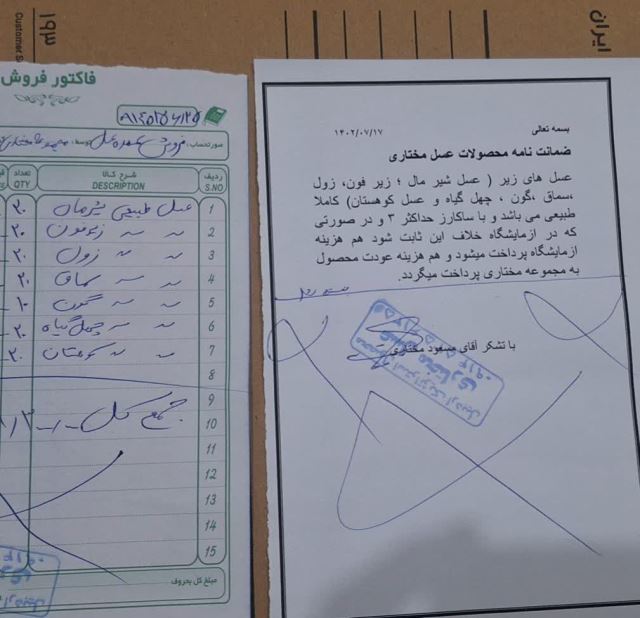 ایران
۱۹۳
Customer
بسمه تعالی
۱۴۰۲/۰۷/۱۷
ضمانت نامه محصولات عسل مختاری
عسل های زیر ( عسل شیر مال ؛ زیر فون، زول
،سماق ،گون ، چهل گیاه و عسل کوهستان) کاملا
طبیعی می باشد و با ساکارز حداکثر ۳ و در صورتی
که در ازمایشگاه خلاف این ثابت شود هم هزینه
ازمایشگاه پرداخت میشود و هم هزینه عودت محصول
به مجموعه مختاری پرداخت میگردد.
با تشکر آقای مسعود مختاری
فاکتور فروش
صورتحساب: فروش عمده عسل توسط:
ردیف شرح کالا تعداد
S.NO DESCRIPTION
1 عسل طبیعی شیرمال ۲۰
2 〃 〃 زیرفون ۲۰
3 〃 〃 زول ۲۰
4 〃 〃 سماق ۲۰
5 〃 〃 گون ۱۰
6 〃 〃 چهل گیاه ۲۰
7 〃 〃 کوهستان ۲۰
8
9
10 جمع کل
11
12
13
14
15
مبلغ کل بحروف